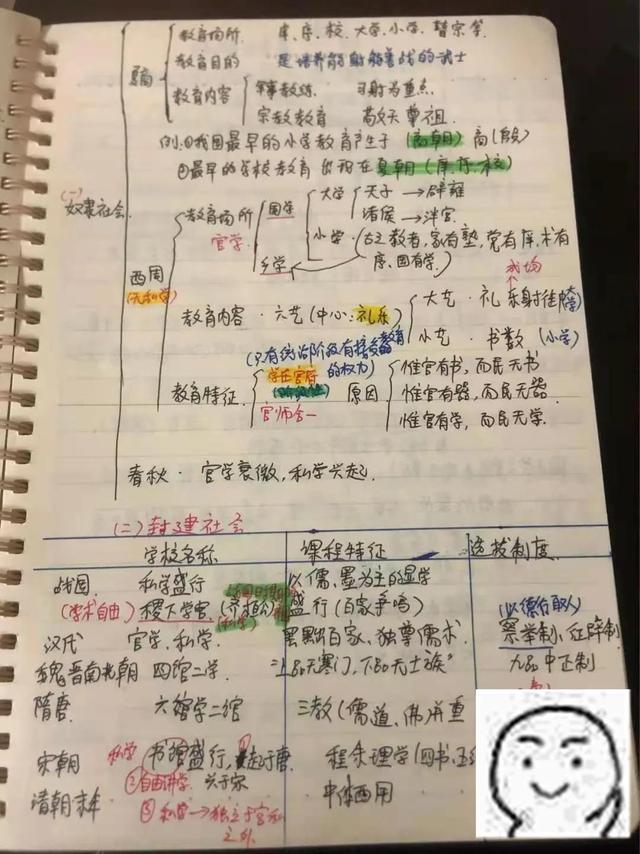 教育场所 庠、序、校、大学、小学、瞽宗等
教育目的 是培养能射能善战的武士
夏商
教育内容 军事教练 习射为重点
宗教教育 敬天尊祖
例:①我国最早的小学教育产生于(商朝)商(殷)
②最早的学校教育出现在夏朝(庠、序、校)
(一)
奴隶社会
西周
(无私学)
教育场所
官学
国学
大学 天子→辟雍
诸侯→泮宫
小学
乡学
(古之教者,家有塾,党有庠,术有
序,国有学)
教育内容·六艺(中心:礼乐)
大艺·礼乐射御
小艺·书数(小学)
(只有统治阶级有接受教育
的权力)
教育特征
学在官府
(阶级性)
官师合一
原因
惟官有书,而民无书
惟官有器,而民无器
惟官有学,而民无学.
春秋·官学衰微,私学兴起.
(二)封建社会
学校名称 课程特征 选拔制度
战国 私学盛行 以儒、墨为主的显学
(学术自由) 稷下学宫(齐桓公) 盛行(百家争鸣) (以德行取人)
汉代 官学、私学 罢黜百家、独尊儒术 察举制、征辟制
魏晋南北朝 四馆二学 "上品无寒门,下品无士族" 九品中正制
隋唐 六学二馆 三教(儒、道、佛)并重
宋朝 私学 书院盛行,起于唐. 程朱理学(四书、五
②自由讲学 兴于宋
清朝末年 中体西用
③私学→独立于官私
之外